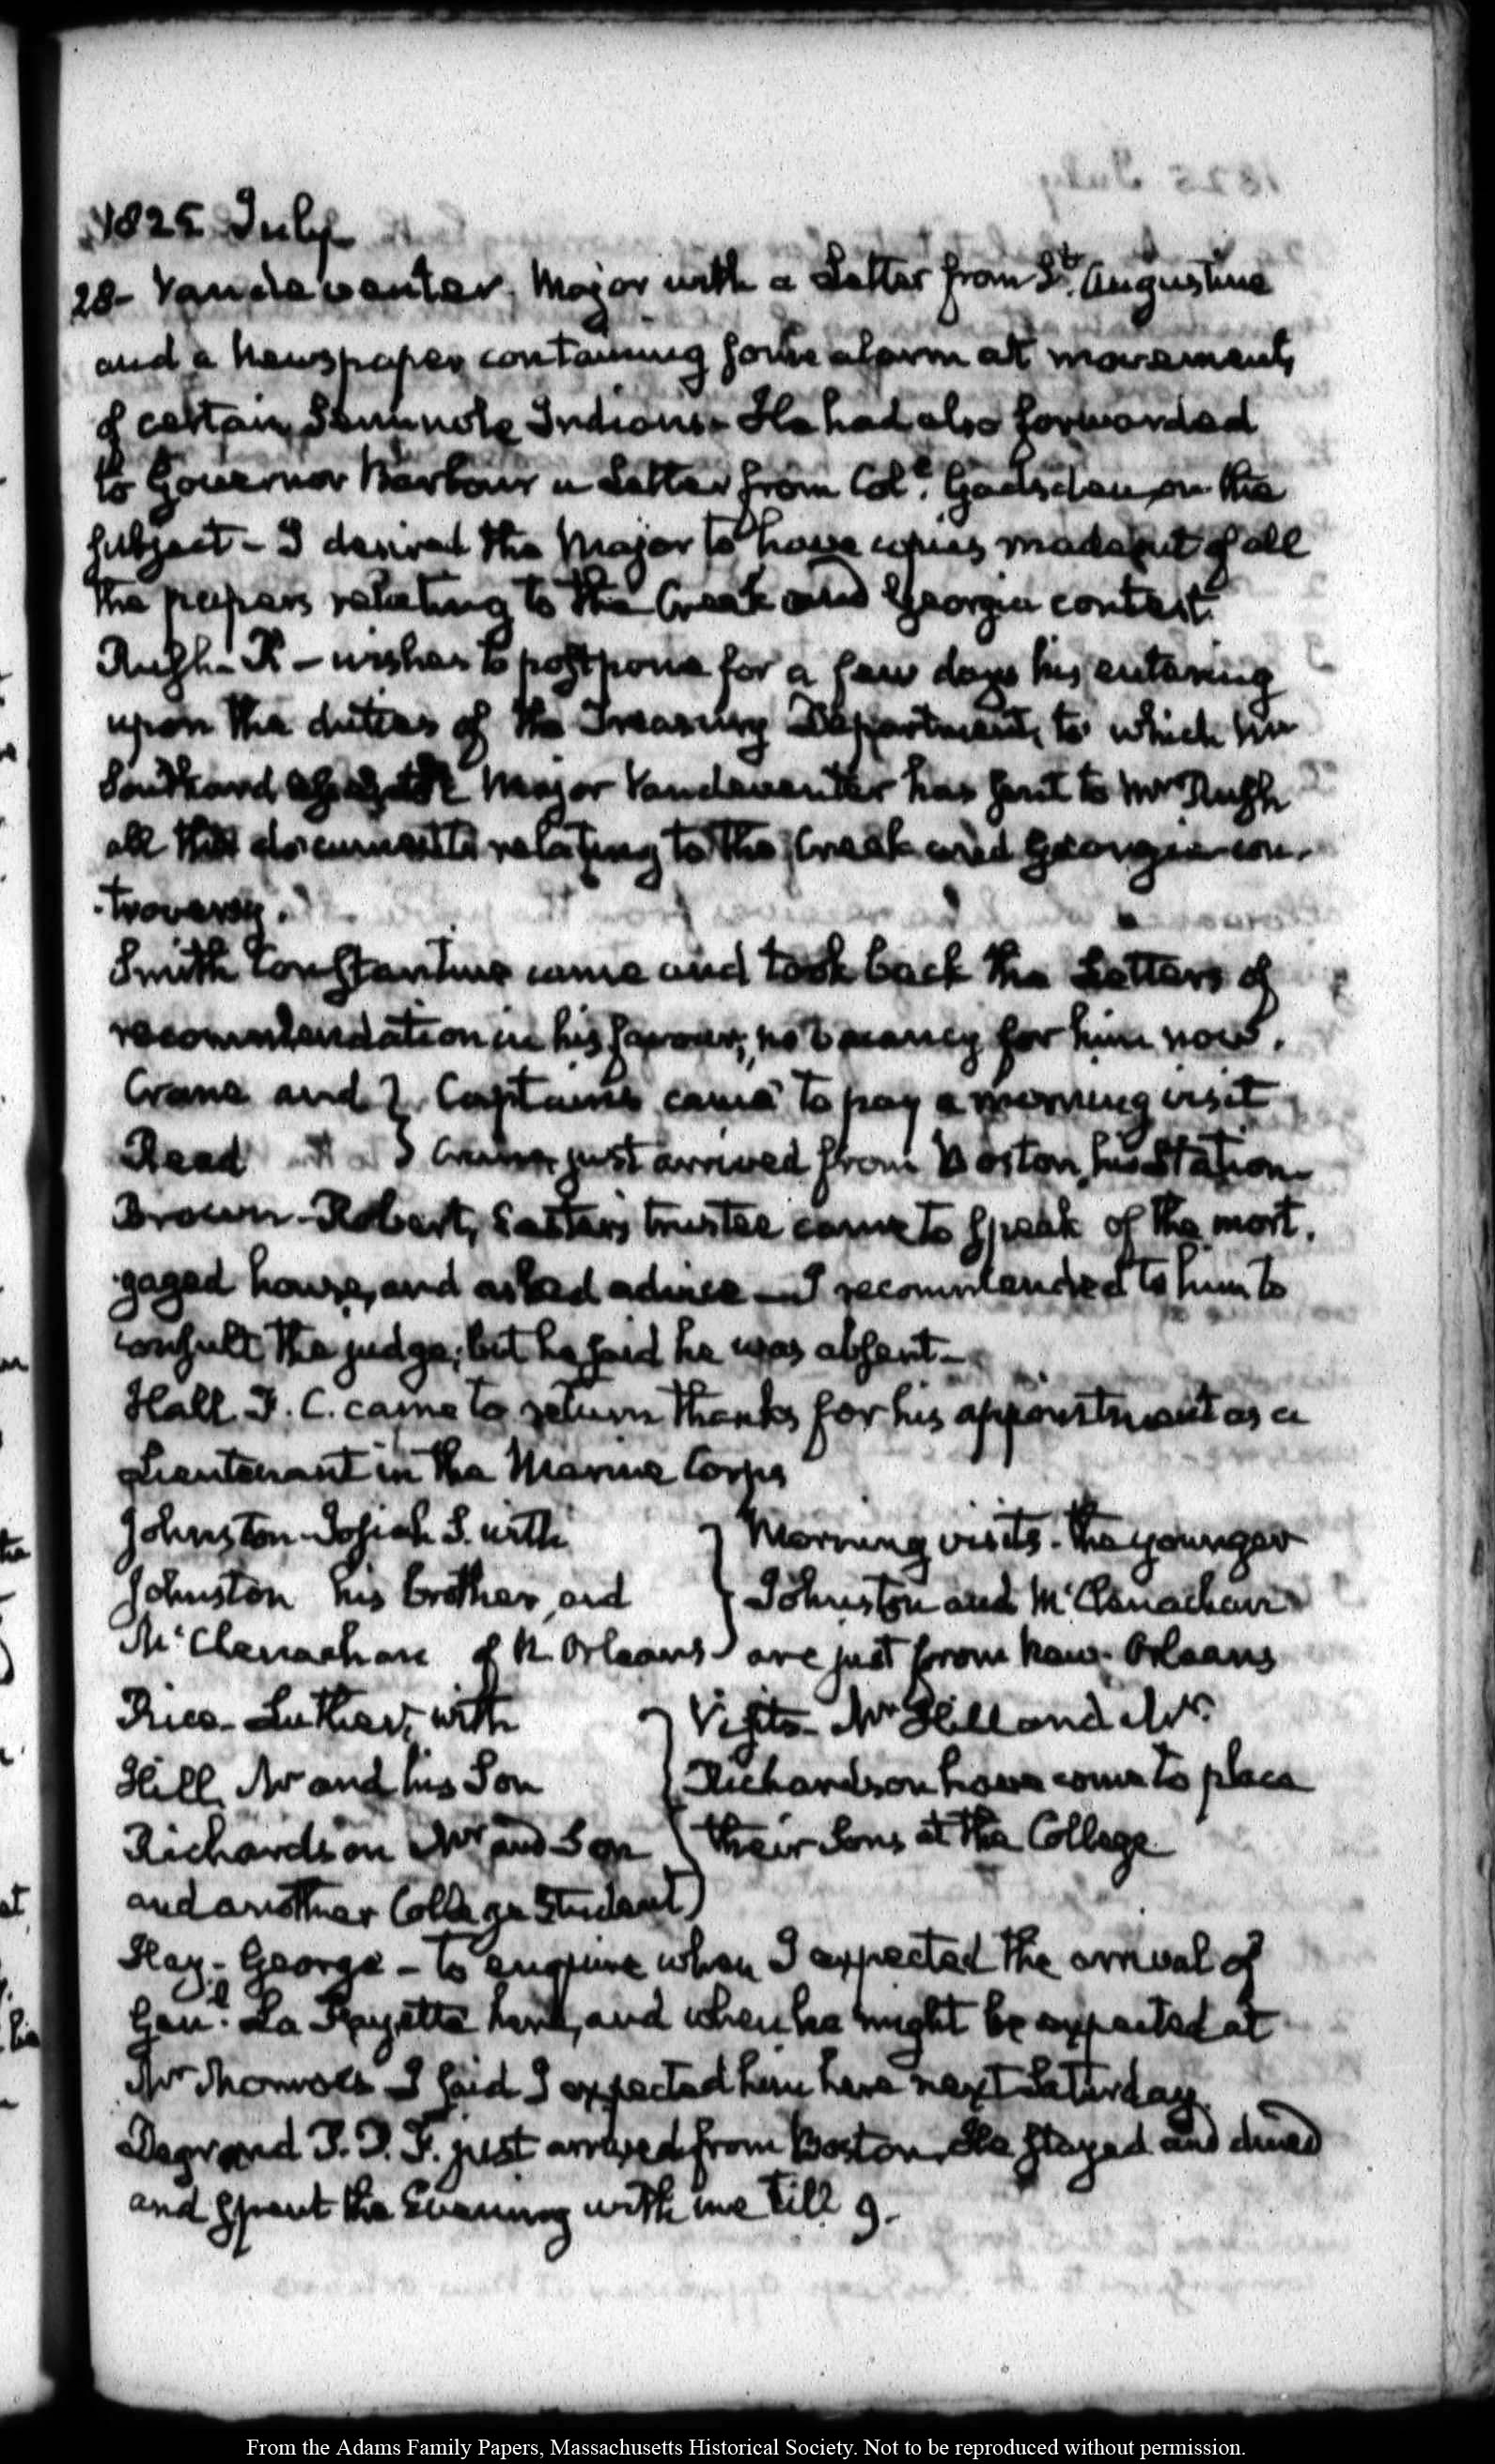 1825 July
28- Vandeventer, Major with a Letter from St. Augustine
and a Newspaper containing some alarm at movements
of certain Seminole Indians- He had also forwarded
to Governor Barbour a Letter from Coll. Gadsden on the
subject- I desired the Major to have copies made out of all
the papers relating to the Creek and Georgia contest.
Rush- R- wishes to postpone for a few days his entering
upon the duties of the Treasury Department, to which Mr
Southard Major Vandeventer has sent to Mr Rush
all the documents relating to the Creek and Georgia con-
-troversy.
Smith Constantine came and took back the Letters of
recommendation in his favour, no vacancy for him now.
Crane and } Captains came to pay a morning visit
Read } Crane just arrived from Boston, his Station
Brown- Robert, trustee came to speak of the mort-
-gaged house, and asked advice- I recommended to him to
consult the judge; but he said he was absent-
Hall. F. C. came to return thanks for his appointment as a
Lieutenant in the Marine Corps
Johnston- Josiah S. with } Morning visits- the younger
Johnston his brother, and } Johnston and McClanachan
McClenachan of N. Orleans } are just from New- Orleans
Rice- Luther, with } Visits- Mr Hill and Mr.
Hill, Mr and his Son } Richardson have come to place
Richardson Mr and Son } their Sons at the College
and another College Student }
Hay- George- to enquire when I expected the arrival of
Genl. La Fayette here, and when he might be expected at
Mr Monroes I said I expected him here next Saturday.
Degrand P. P. F. just arrived from Boston. He stayed and dined
and spent the Evening with me till 9-
From the Adams Family Papers, Massachusetts Historical Society. Not to be reproduced without permission.